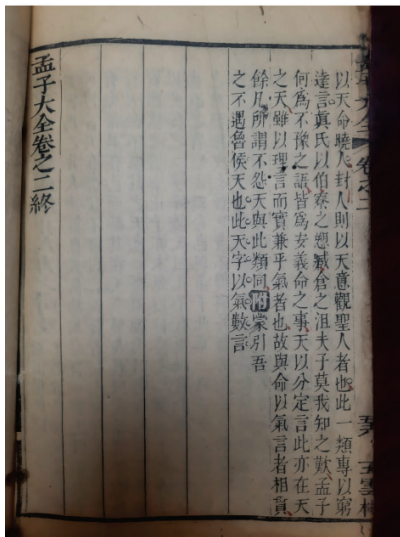 以天命曉人封人則以天意觀聖人者也此一類專以窮
達言真氏以伯寮之愬臧倉之沮夫子莫我知之歎孟子
何為不豫之語皆為安義命之事天以分定言此亦在天
之天雖以理言而實兼乎氣者也故與命以氣言者相貫
餘凡所謂不怨天與此類同附蒙引吾
之不遇魯侯天也此天字以氣數言
孟子大全卷之二終